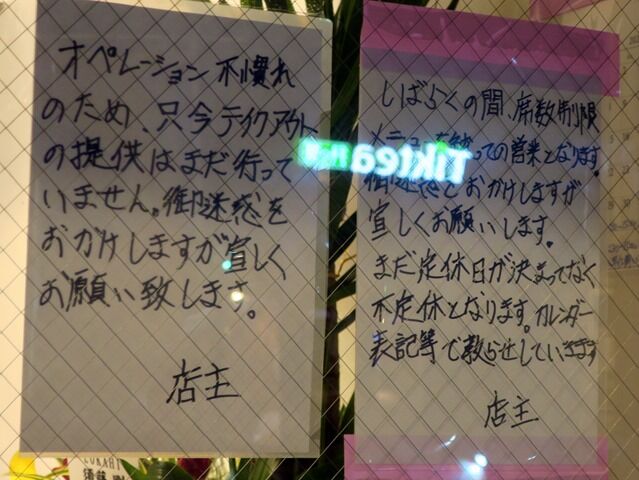 オペレーション不慣れ
のため、只今テイクアウト
の提供はまだ行って
いません。御迷惑を
おかけしますが宜しく
お願い致します。
店主
しばらくの間、席数制限
メニューを絞っての営業となります。
御迷惑をおかけしますが
宜しくお願いします。
まだ定休日が決まってなく
不定休となります。カレンダー
表記等で教らせしていきます
店主
Tiktea